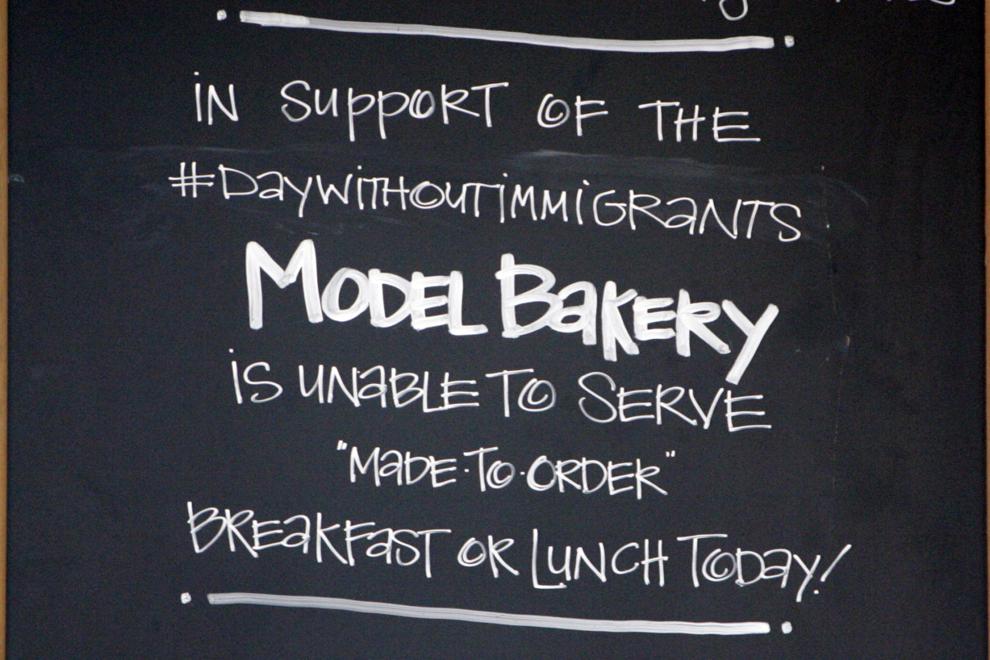 IN SUPPORT OF THE
#DAYWITHOUTIMMIGRANTS
MODEL BAKERY
IS UNABLE TO SERVE
"MADE·TO·ORDER"
BREAKFAST OR LUNCH TODAY!